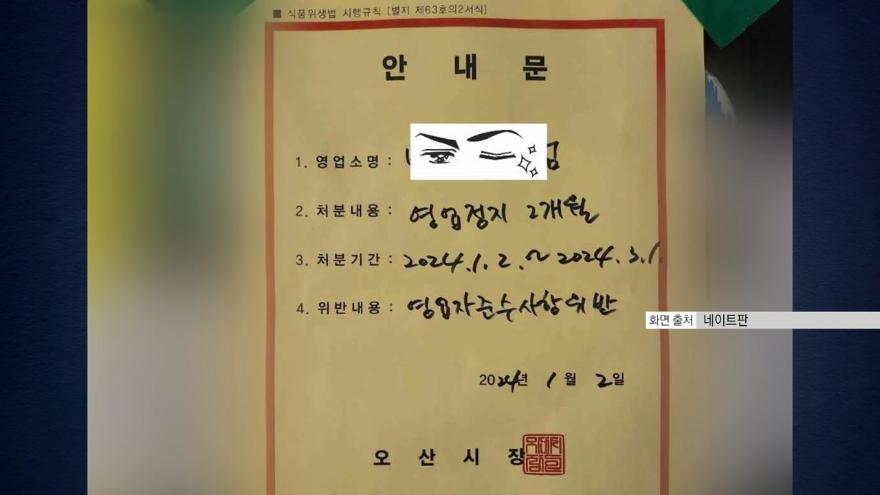 ■ 식품위생법 시행규칙 [별지 제63호의2서식]
안 내 문
1. 영업소명 :
2. 처분내용 : 영업정지 2개월
3. 처분기간 : 2024.1.2.~2024.3.1.
4. 위반내용 : 영업자준수사항위반
화면 출처 네이트판
2024년 1월 2일
오 산 시 장